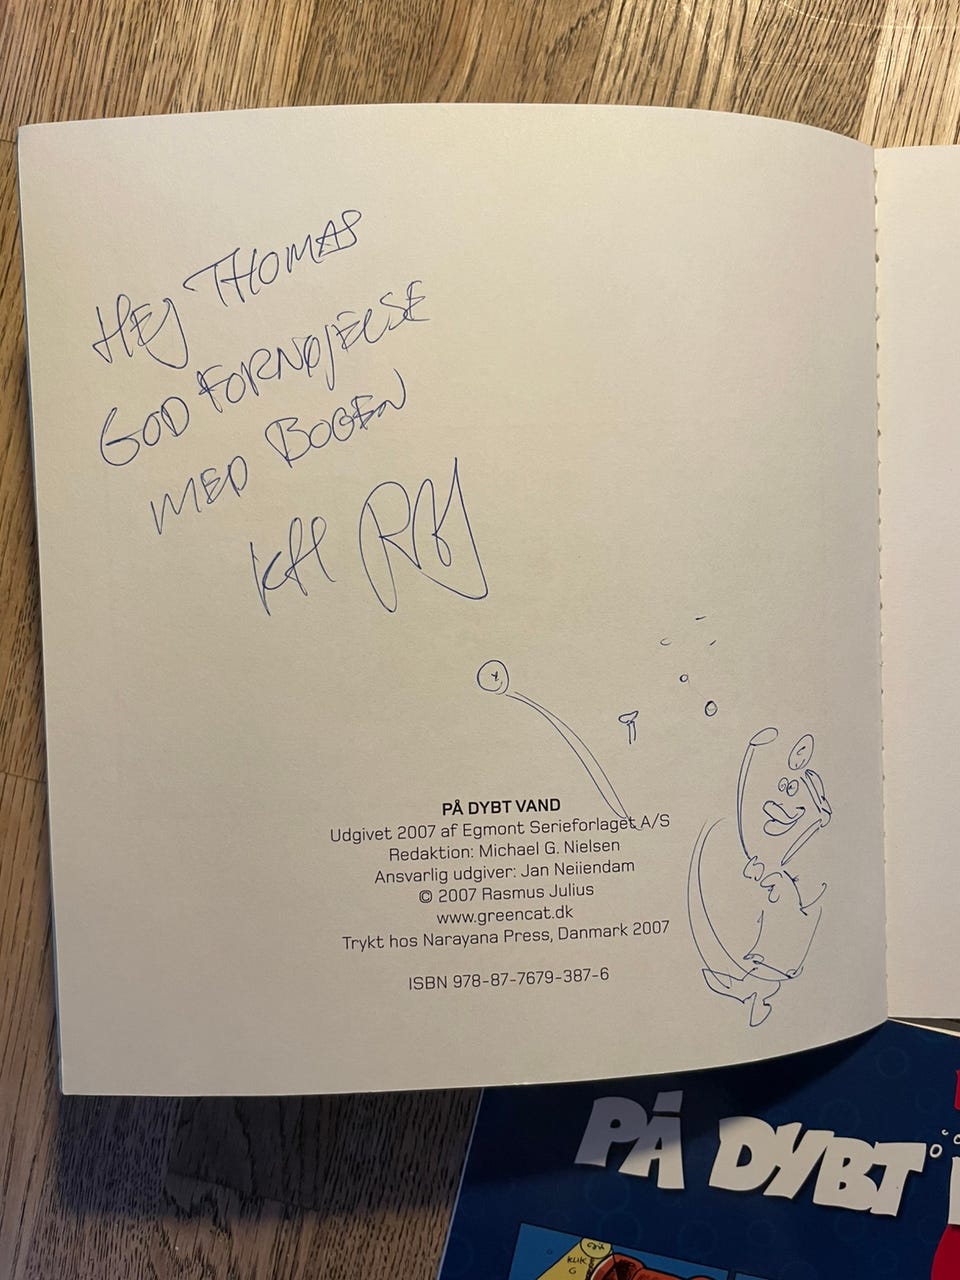 HEJ THOMAS
GOD FORNØJELSE
MED BOGEN
KH
PÅ DYBT VAND
Udgivet 2007 af Egmont Serieforlaget A/S
Redaktion: Michael G. Nielsen
Ansvarlig udgiver: Jan Neiiendam
© 2007 Rasmus Julius
www.greencat.dk
Trykt hos Narayana Press, Danmark 2007
ISBN 978-87-7679-387-6
PÅ DYBT
KLIK